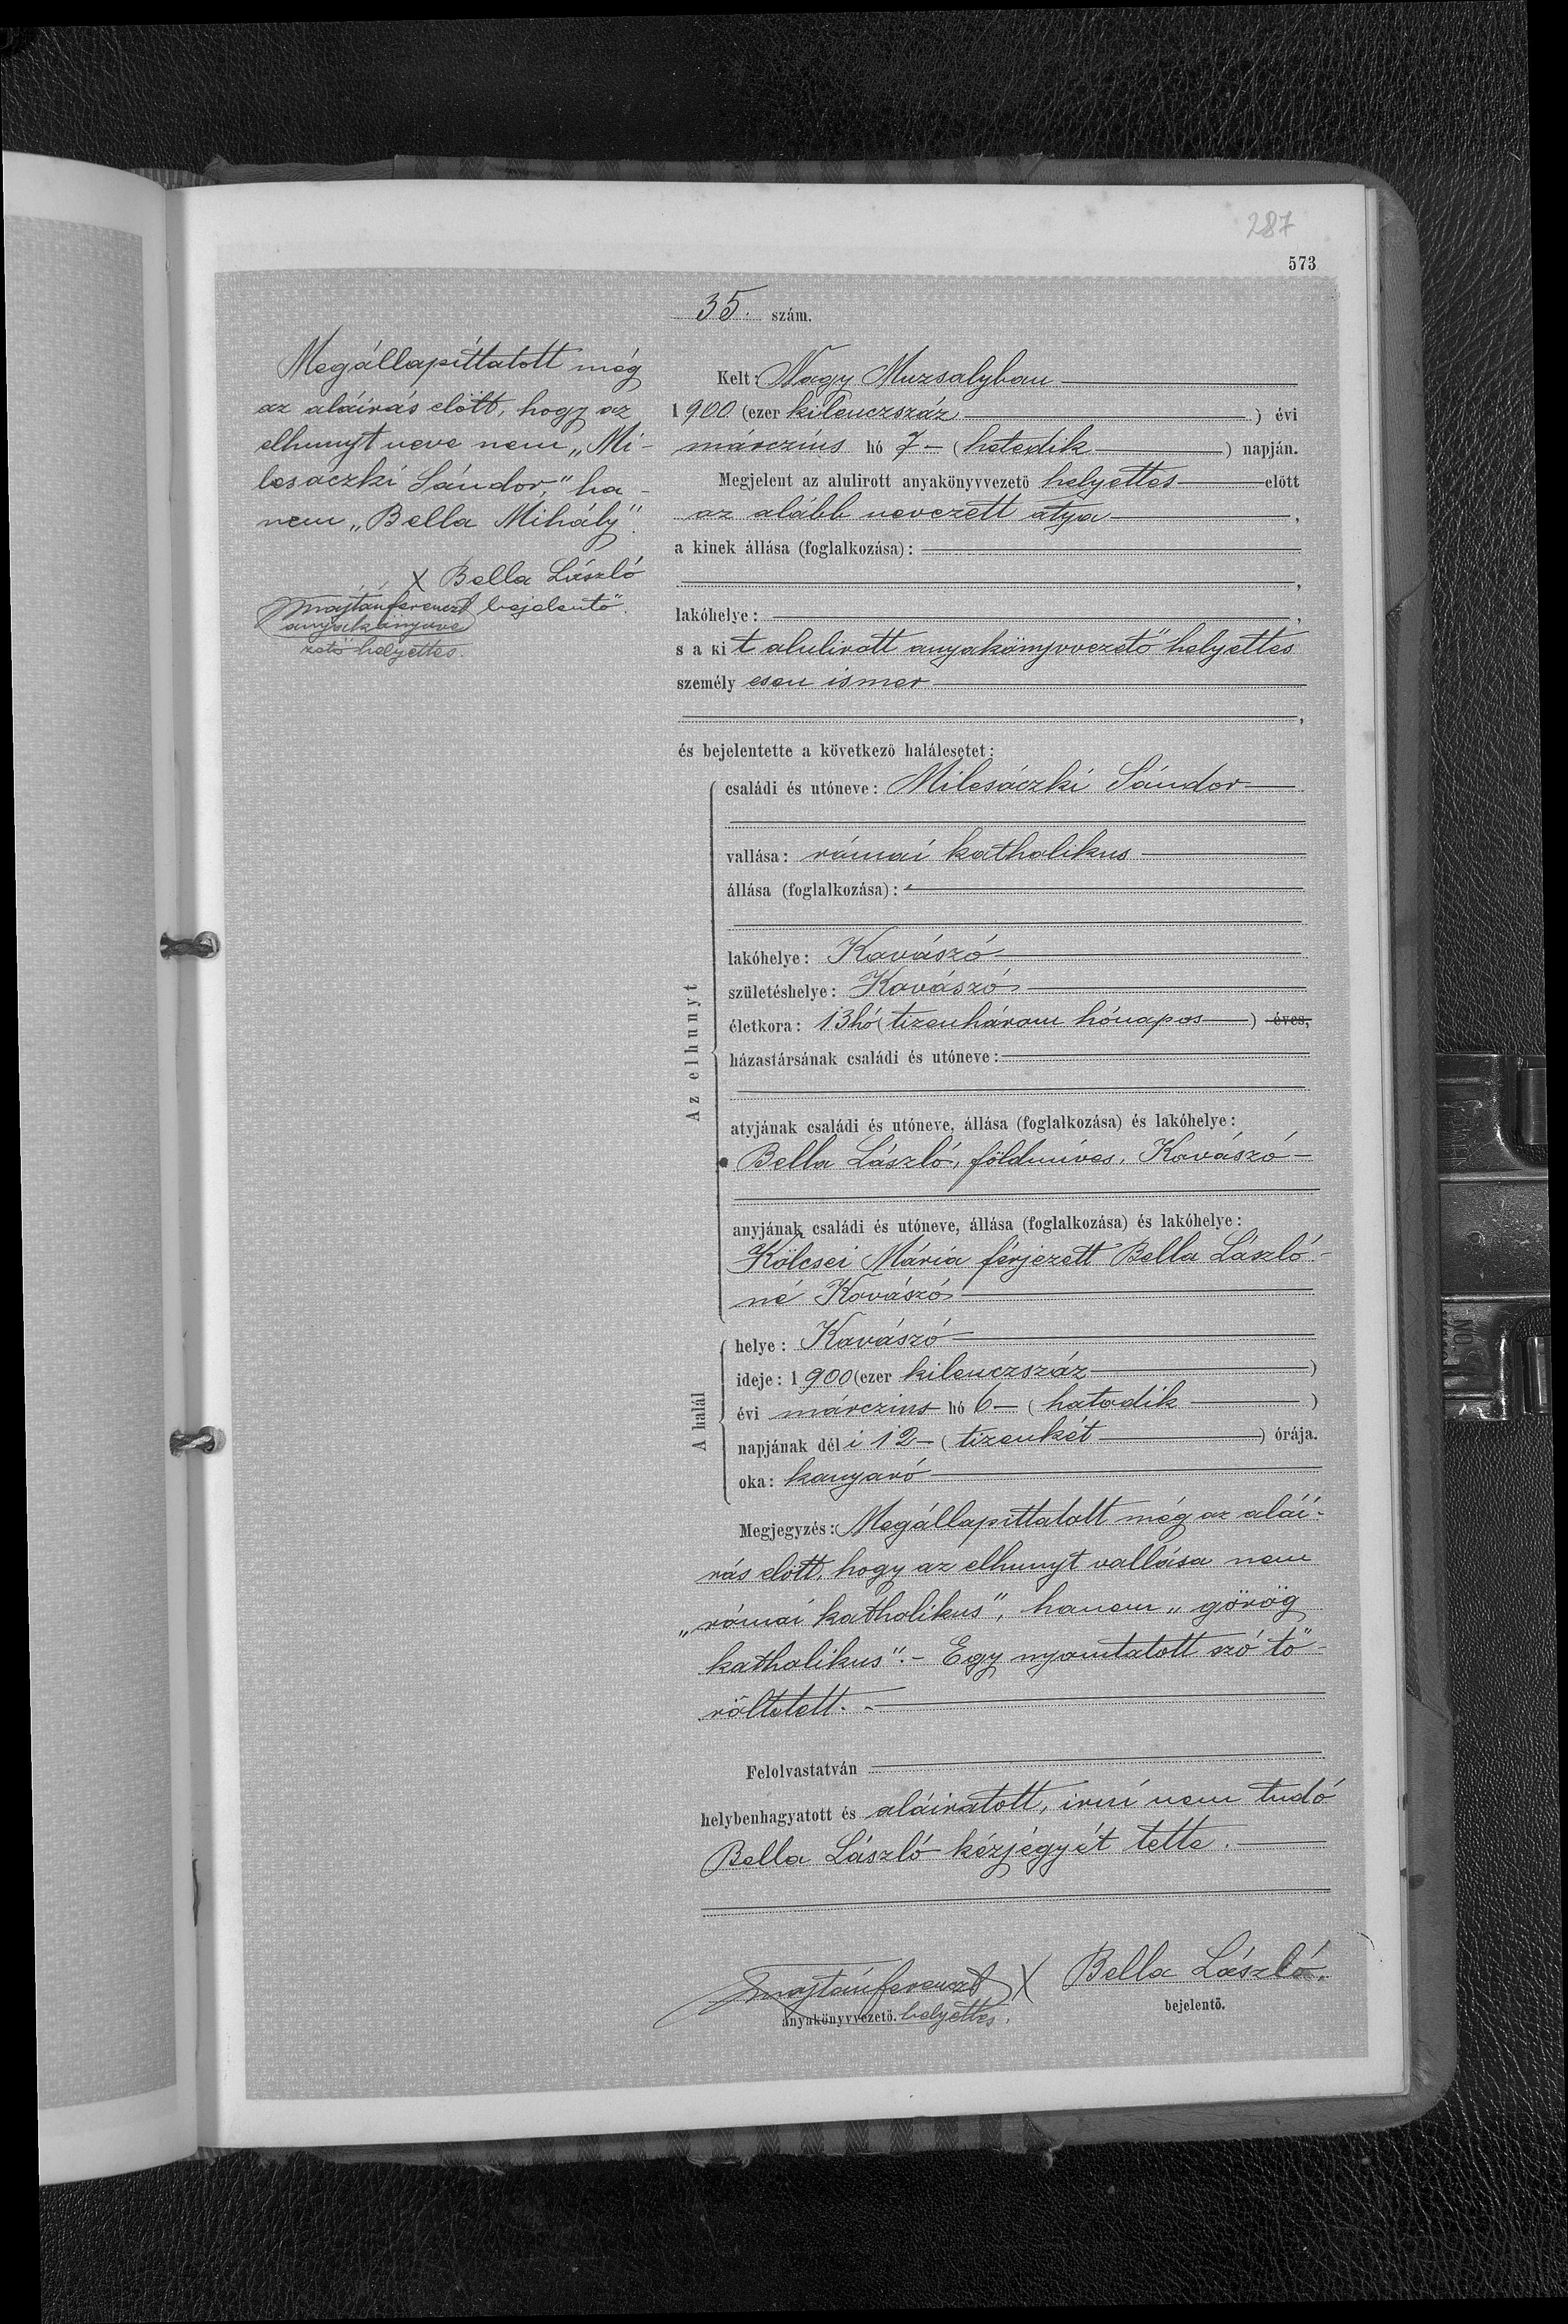 287
573
35. szám.
Megállapíttatott még
az aláirás előtt, hogy az
elhunyt neve nem „Mi-
lesaczki Sándor," ha-
nem „Bella Mihály".
X Bella László
bejelentő.
Majtán Ferencz
anyakönyvve
zető helyettes.
Kelt: Nagy Muzsalyban
1900 (ezer kilenczszáz ) évi
márczius hó 7 – (hetedik ) napján.
Megjelent az alulirott anyakönyvvezető helyettes előtt
az alább nevezett atya ,
a kinek állása (foglalkozása):
,
lakóhelye: ,
s a kit alulirott anyakönyvvezető helyettes
személyesen ismer
,
és bejelentette a következő halálesetet:
Az elhunyt
családi és utóneve: Milesáczki Sándor
vallása: római katholikus
állása (foglalkozása):
lakóhelye: Kovászó
születéshelye: Kovászó
életkora: 13 hó (tizenhárom hónapos ) éves,
házastársának családi és utóneve:
atyjának családi és utóneve, állása (foglalkozása) és lakóhelye:
Bella László, földmíves, Kovászó –
anyjának családi és utóneve, állása (foglalkozása) és lakóhelye:
Kölcsei Mária férjezett Bella László-
né Kovászó
A halál
helye: Kovászó
ideje: 1900 (ezer kilenczszáz )
évi márczius hó 6 – (hatodik )
napjának déli 12 – (tizenkét ) órája.
oka: kanyaró
Megjegyzés: Megállapíttatott még az aláí-
rás előtt, hogy az elhunyt vallása nem
„római katholikus", hanem „görög
katholikus". – Egy nyomtatott szó tö-
röltetett. –
Felolvastatván
helybenhagyatott és aláiratott, irni nem tudó
Bella László kézjegyét tette.
Majtán Ferencz X Bella László.
anyakönyvvezető. helyettes.
bejelentő.